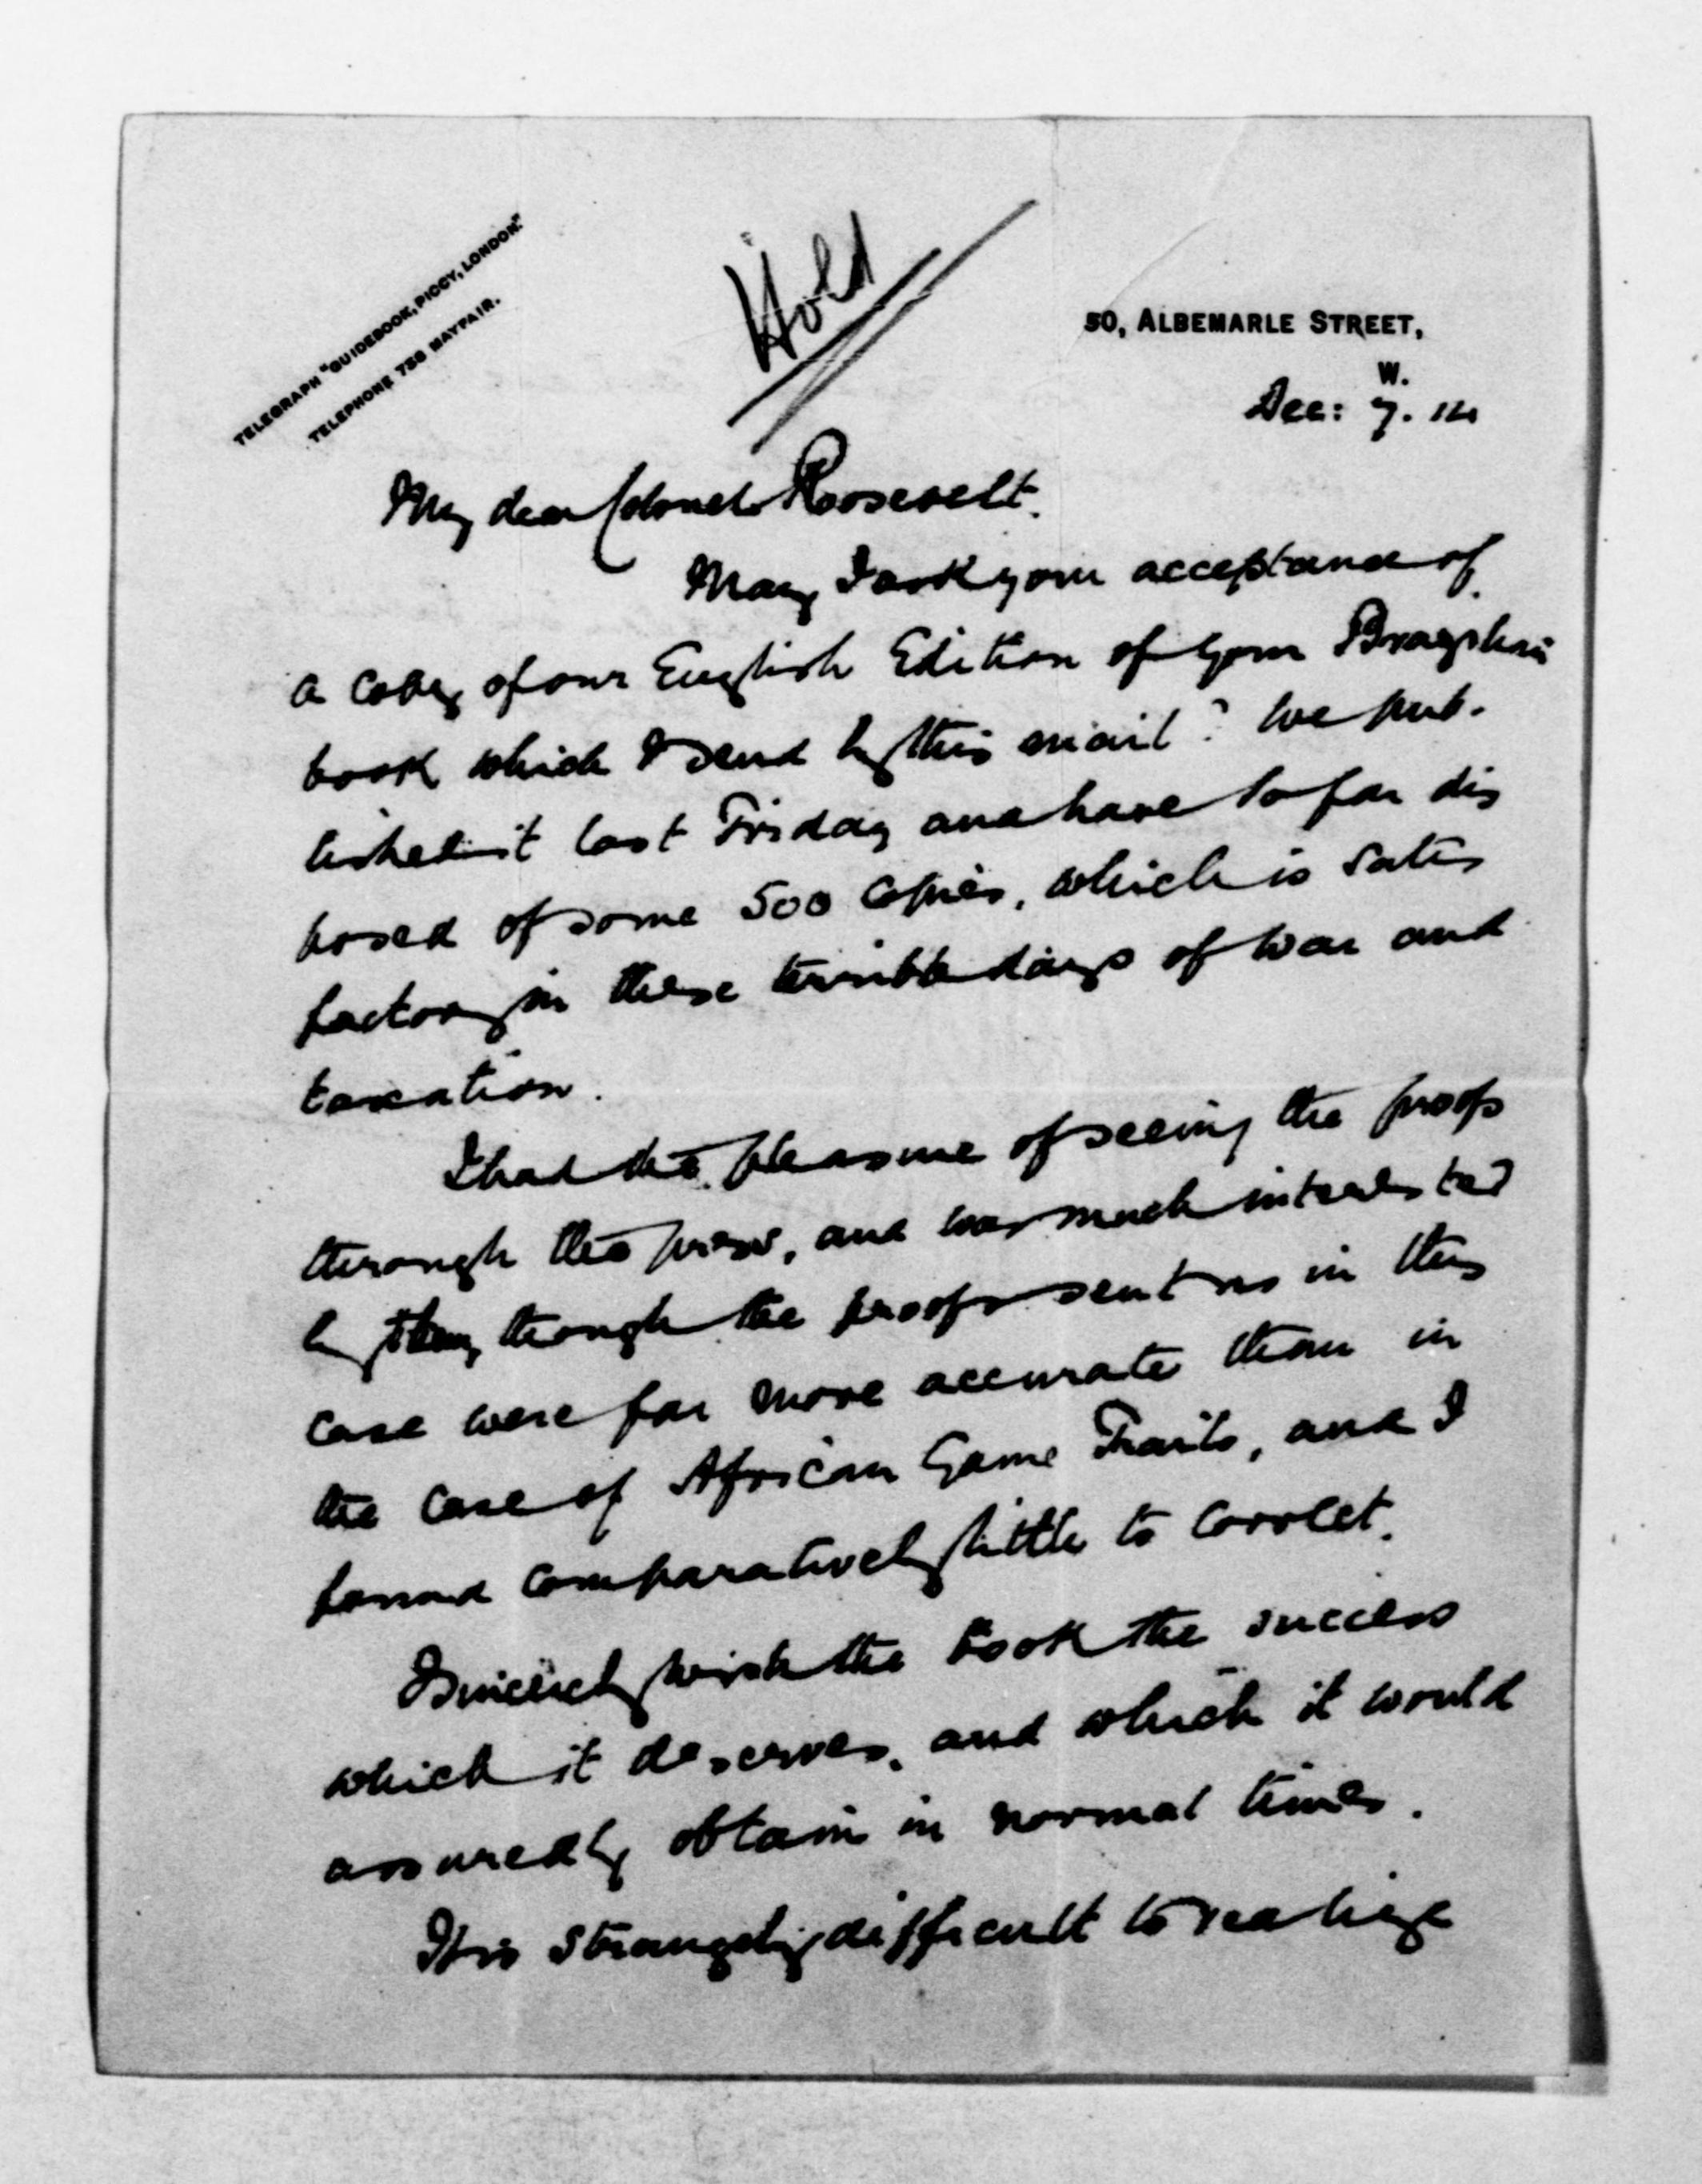 TELEGRAPH "GUIDEBOOK, PICCY, LONDON."
TELEPHONE 786 MAYFAIR.
Hold
50, ALBEMARLE STREET,
W.
Dec: 7. 14
My dear Colonel Roosevelt.
May I ask your acceptance of
a copy of our English Edition of your Brazilian
book which I send by this mail? We pub-
lished it last Friday and have so far dis
posed of some 500 copies, which is satis
factory in these terrible days of war and
taxation.
I had the pleasure of seeing the proofs
through the press, and was much interested
by them, though the proofs sent us in this
case were far more accurate than in
the case of African Game Trails, and I
found comparatively little to correct.
I sincerely wish the book the success
which it deserves, and which it would
assuredly obtain in normal times.
It is strangely difficult to realize